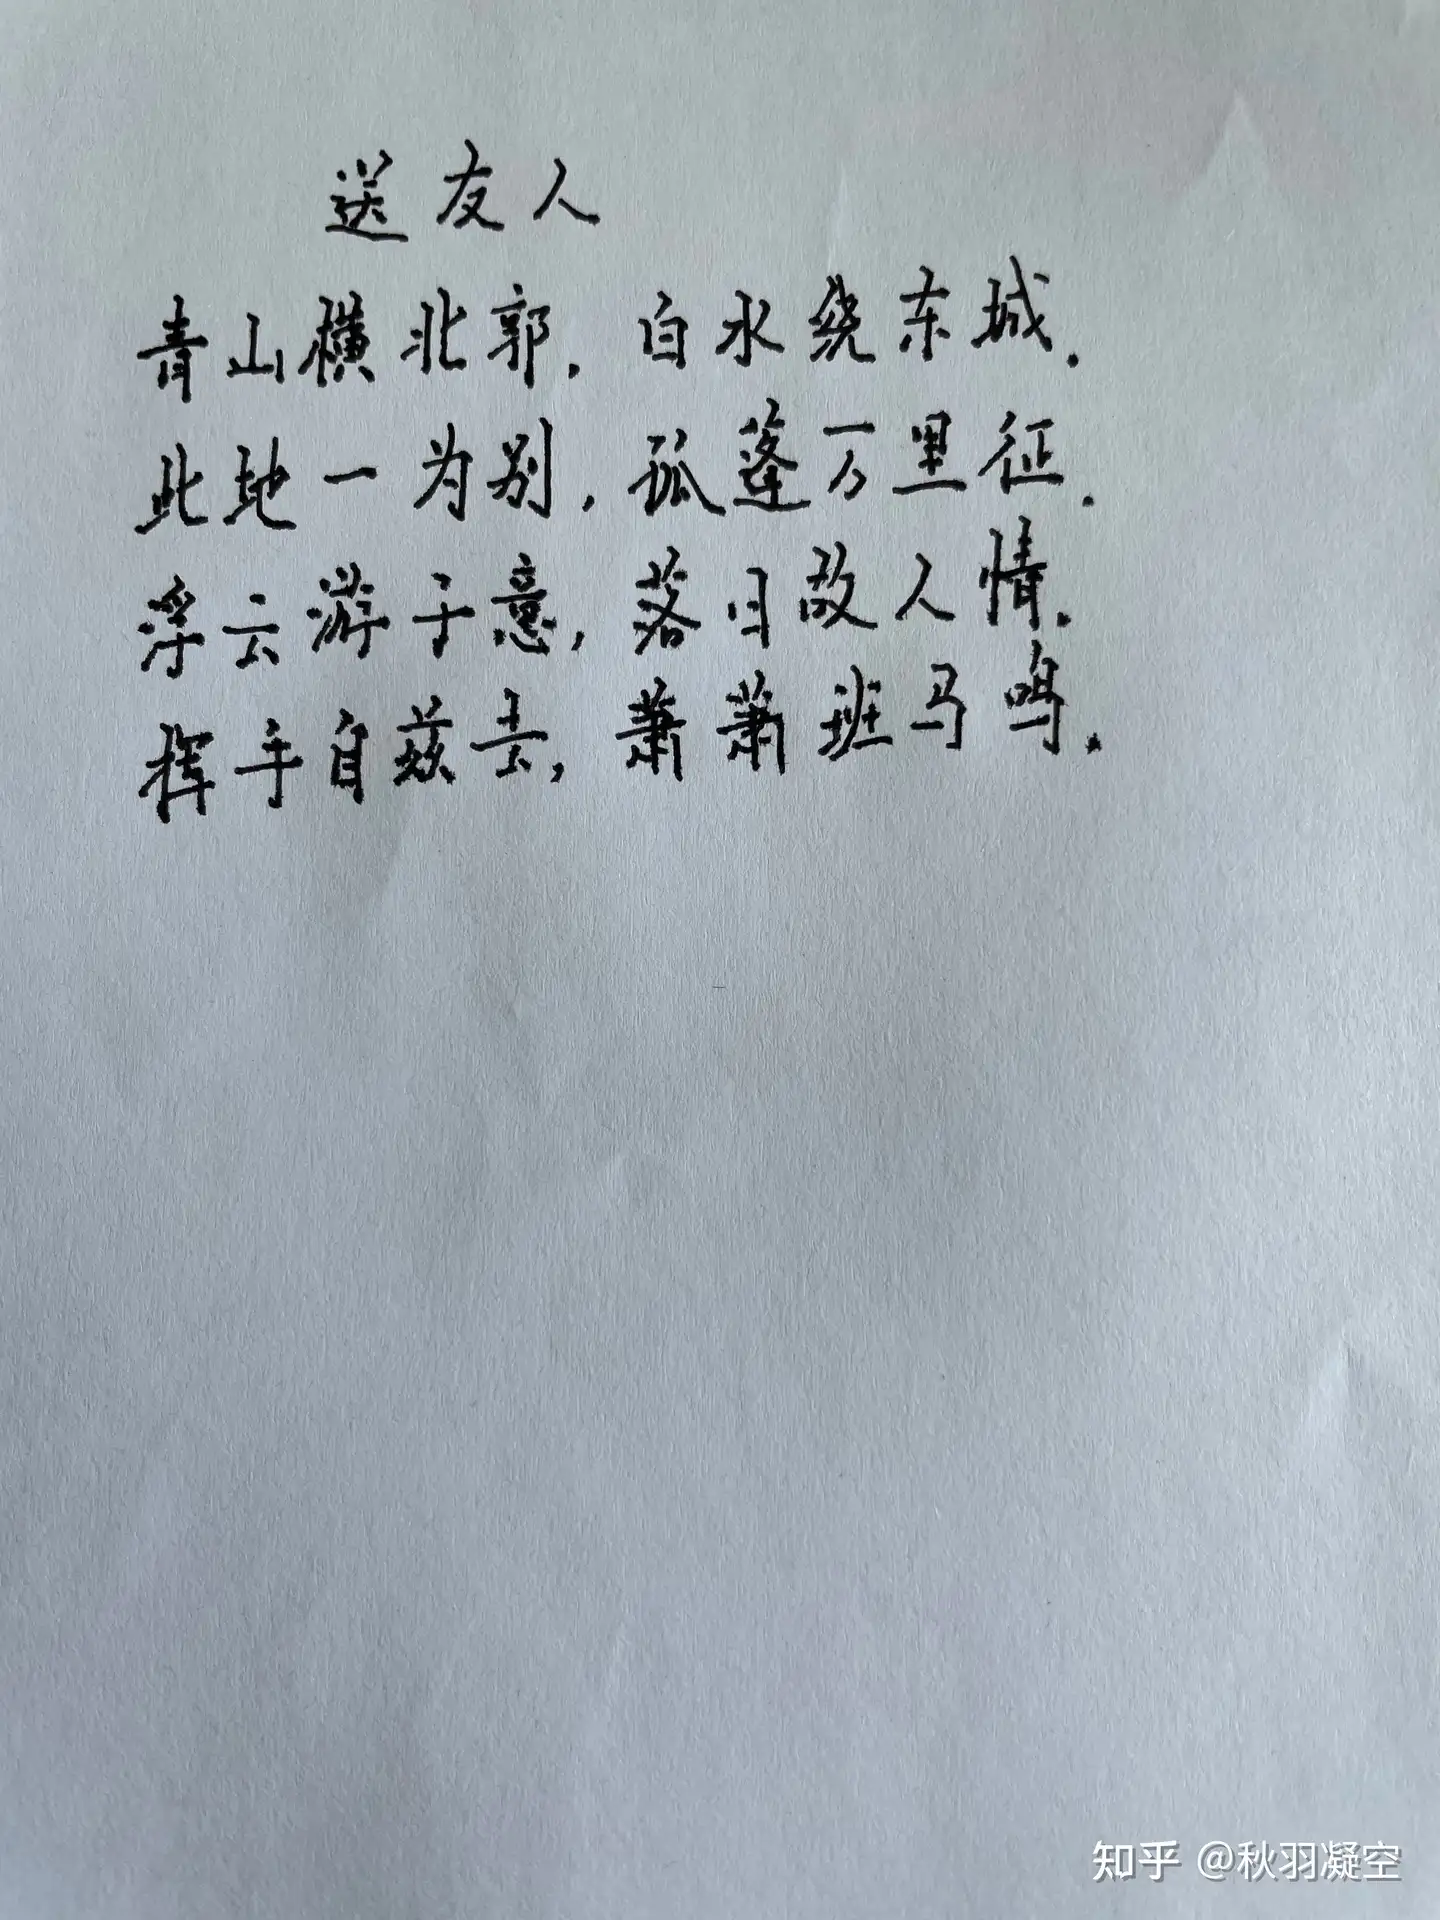 送友人
青山横北郭. 白水绕东城.
此地一为别, 孤蓬万里征.
浮云游子意, 落日故人情.
挥手自兹去, 萧萧班马鸣.
知乎 @秋羽凝空